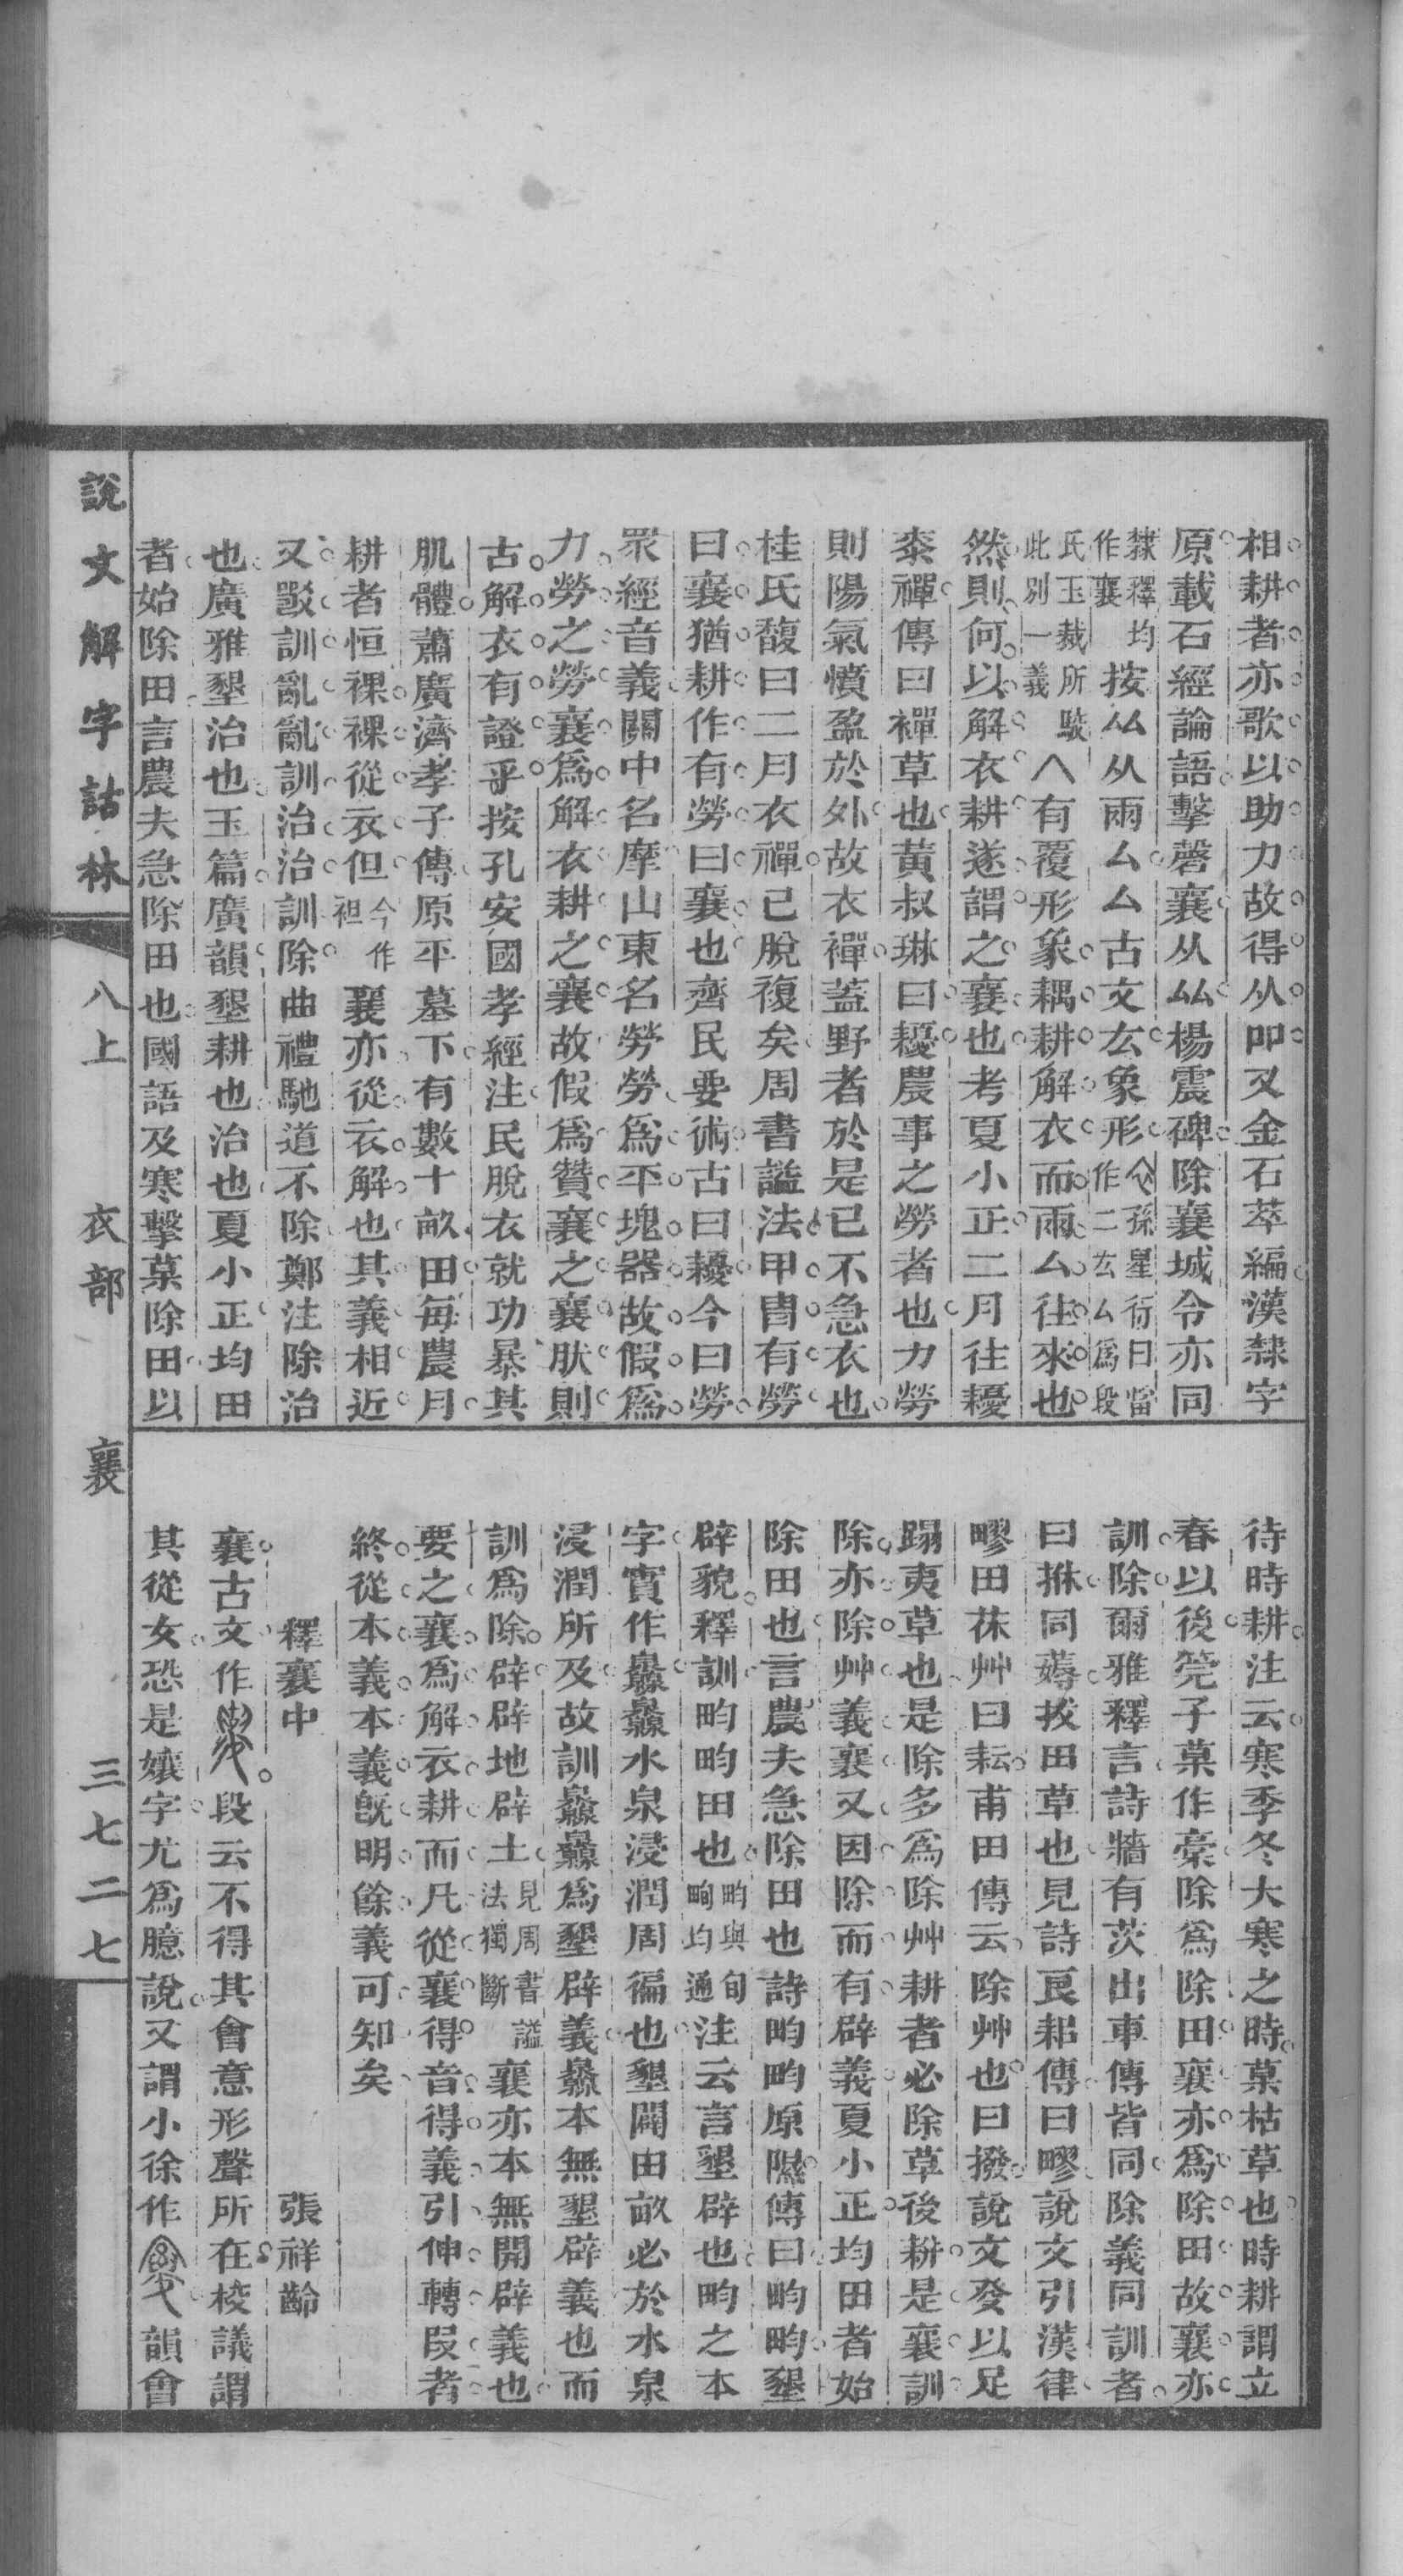 相耕者亦歌以助力故得从吅又金石萃編漢隸字
原載石經論語擊磬襄从𠈌楊震碑除襄城令亦同
隸釋均作襄按𠈌从雨厶厶古文厷象形孫星衍曰當作二厷厶爲段
氏玉裁所駿此別一義八有覆形象耦耕解衣而雨厶往來也
然則何以解衣耕遂謂之襄也考夏小正二月往耰
黍襌傳曰襌草也黃叔琳曰耰農事之勞者也力勞
則陽氣憤盈於外故衣襌蓋野者於是已不急衣也
桂氏馥曰二月衣襌已脫複矣周書謚法甲胄有勞
曰襄猶耕作有勞曰襄也齊民要術古曰耰今曰勞
眾經音義關中名摩山東名勞勞爲平塊器故假爲
力勞之勞襄爲解衣耕之襄故假爲贊襄之襄肰則
古解衣有證乎按孔安國孝經注民脫衣就功暴其
肌體蕭廣濟孝子傳原平墓下有數十畝田每農月
耕者恒裸裸從衣但今作袒襄亦從衣解也其義相近
又𤕦訓亂亂訓治治訓除曲禮馳道不除鄭注除治
也廣雅墾治也玉篇廣韻墾耕也治也夏小正均田
者始除田言農夫急除田也國語及寒擊菒除田以
待時耕注云寒季冬大寒之時菒枯草也時耕謂立
春以後筦子菒作槀除爲除田襄亦爲除田故襄亦
訓除爾雅釋言詩牆有茨出車傳皆同除義同訓者
曰茠同薅拔田草也見詩良耜傳曰疁說文引漢律
疁田茠艸曰耘甫田傳云除艸也曰撥說文癹以足
蹋夷草也是除多爲除艸耕者必除草後耕是襄訓
除亦除艸義襄又因除而有辟義夏小正均田者始
除田也言農夫急除田也詩畇畇原隰傳曰畇畇墾
辟貌釋訓畇畇田也畇與旬畇均通注云言墾辟也畇之本
字實作灥灥水泉浸潤周徧也墾闢田畝必於水泉
浸潤所及故訓灥灥爲墾辟義灥本無墾辟義也而
訓爲除辟辟地辟土見周書謚法獨斷襄亦本無開辟義也
要之襄爲解衣耕而凡從襄得音得義引伸轉叚者
終從本義本義旣明餘義可知矣
釋襄中　張祥齡
襄古文作段云不得其會意形聲所在校議謂
其從女恐是孃字尤爲臆說又謂小徐作韻會
說文解字詁林　八上　衣部　襄　三七二七